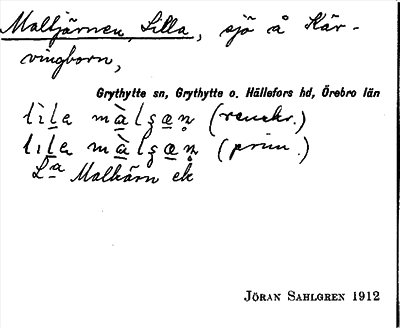 Malltjärnen, Lilla, sjö å Kär-
vingborn,
Grythytte sn, Grythytte o. Hällefors hd, Örebro län
lìla màlʂæn̥ (renskr.)
lìla màlʂæn̥ (prim.)
La Malkärn ek
JÖRAN SAHLGREN 1912